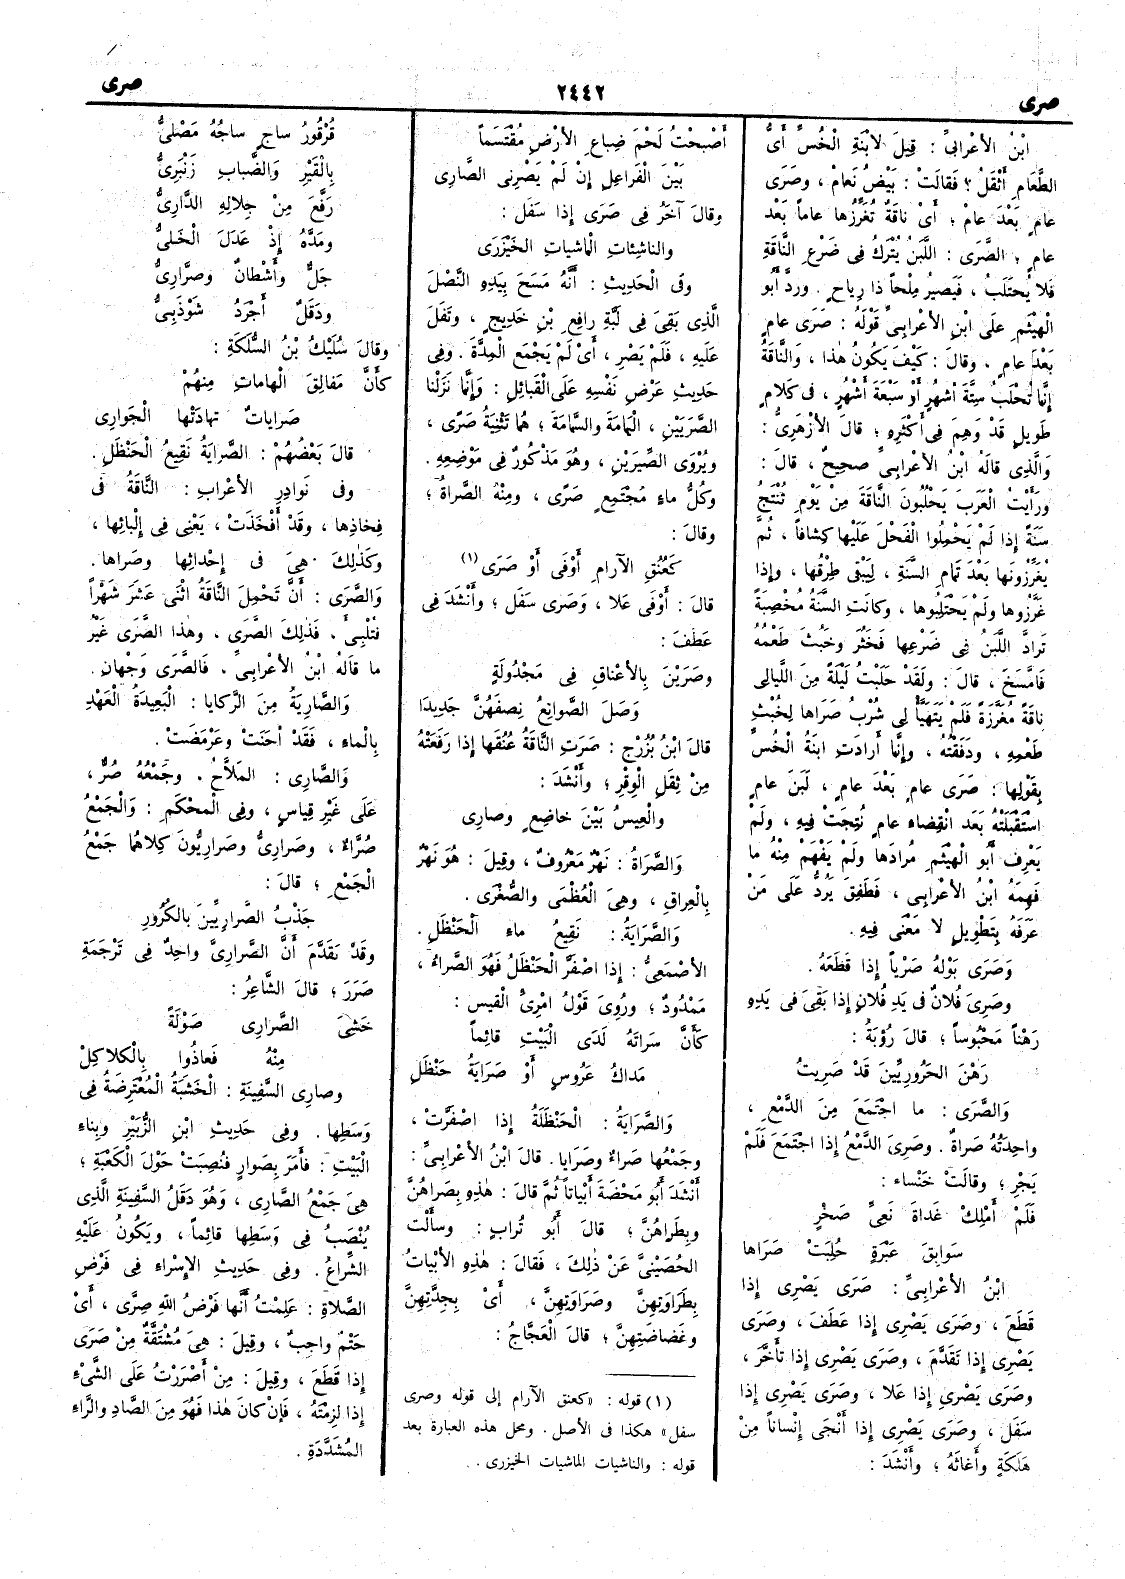 صرى
٢٤٤٢
صرى
ابْنُ الأَعْرابىِّ : قِيلَ لابْنَةِ الْخُسِّ أَىُّ
الطَّعامِ أَثْقَلُ ؟ فَقالَتْ : بَيْضُ نَعامْ ، وصَرَى
عامٍ بَعْدَ عامْ ؛ أَىْ ناقَةٌ تُغَرِّزُها عاماً بَعْدَ
عامٍ ؛ الصَّرَى : اللَّبَنُ يُتْرَكُ فى ضَرْعِ النَّاقَةِ
فَلا يُحْتَلَبُ ، فَيَصيرُ مِلْحاً ذا رِياحٍ . وردَّ أَبُو
الْهَيْثَمِ علَى ابْنِ الأَعْرابِىِّ قَوْلَهُ : صَرَى عامٍ
بَعْدَ عامٍ ، وقالَ : كَيْفَ يَكُونُ هٰذا ، وَالنَّاقَةُ
إِنَّما تُحْلَبُ سِتَّةَ أَشْهُرٍ أَوْ سَبْعَةَ أَشْهُرٍ ، فى كَلامٍ
طَوِيلٍ قَدْ وَهِمَ فى أَكْثَرِهِ ؛ قالَ الأَزْهَرِىُّ :
وَالَّذِى قالَهُ ابْنُ الأَعْرابِىِّ صَحِيحٌ ، قالَ :
ورَأَيْتُ الْعَرَبَ يَحْلُبُونَ النَّاقَةَ مِنْ يَوْمِ تُنْتَجُ
سَنَةً إِذا لَمْ يَحْمِلُوا الْفَحْلَ عَلَيْها كِشافاً ، ثُمَّ
يُغَرِّزُونَها بَعْدَ تَمامِ السَّنَةِ ، لِيَبْقَى طِرْقُها ، وإِذا
غَرَّزُوها ولَمْ يَحْتَلِبُوها ، وكانَتِ السَّنَةُ مُخْصِبَةً
تَرادَّ اللَّبَنُ فى ضَرْعِها فَخَثُرَ وخَبُثَ طَعْمُهُ
فَامَّسَخَ ، قالَ : ولَقَدْ حَلَبْتُ لَيْلَةً مِنَ اللَّيالِى
ناقَةً مُغَرَّزَةً فَلَمْ يَتَهَيَّأْ لِى شُرْبُ صَرَاها لِخُبْثِ
طَعْمِهِ ، ودَفَقْتُهُ ، وإِنَّما أَرادَتِ ابنَةُ الْخُسِّ
بِقَوْلِها : صَرَى عامٍ بَعْدَ عامٍ ، لَبَنَ عامٍ
اسْتَقْبَلَتْهُ بَعْدَ انْقِضاءِ عامٍ نُتِجَتْ فِيهِ ، ولَمْ
يَعْرِفْ أَبُو الْهَيْثَمِ مُرادَها ولَمْ يَفْهَمْ مِنْهُ ما
فَهِمَهُ ابْنُ الأَعْرابِىِّ ، فَطَفِقَ يَرُدُّ عَلَى مَنْ
عَرَفَهُ بِتَطْوِيلٍ لا مَعْنَى فِيهِ.
وَصَرَى بَوْلَهُ صَرْياً إِذا قَطَعَهُ .
وصَرِىَ فُلانٌ فى يَدِ فُلانٍ إِذا بَقِىَ فى يَدِهِ
رَهْناً مَحْبُوساً ؛ قالَ رُؤْبَةُ :
رَهْنَ الحَرُورِيِّينَ قَدْ صَرِيتُ
وَالصَّرَى : ما اجْتَمَعَ مِنَ الدَّمْعِ ،
واحِدَتُهُ صَراةٌ . وصَرِىَ الدَّمْعُ إِذا اجْتَمَعَ فَلَمْ
يَجْرِ ؛ وقالَتْ خَنْساء :
فَلَمْ أَمْلِكْ غَداةَ نَعِىِّ صَخْرٍ
سَوابِقَ عَبْرَةٍ حُلِبَتْ صَرَاها
ابْنُ الأَعْرابِىِّ : صَرَى يَصْرِى إِذا
قَطَعَ ، وصَرَى يَصْرِى إِذا عَطَفَ ، وصَرَى
يَصْرِى إِذا تَقَدَّمَ ، وصَرَى يَصْرِى إِذا تَأَخَّرَ ،
وصَرَى يَصْرِى إِذا عَلا ، وصَرَى يَصْرِى إِذا
سَفَلَ ، وصَرَى يَصْرِى إِذا أَنْجَى إِنْساناً مِنْ
هَلَكَةٍ وأَغاثَهُ ؛ وأَنْشَدَ :
أَصْبَحْتُ لَحْمَ ضِباعِ الأَرْضِ مُقْتَسَماً
بَيْنَ الْفَراعِلِ إِنْ لَمْ يَصْرِنِى الصَّارِى
وقالَ آخَرُ فِى صَرَى إِذا سَفَلَ :
والناشِئاتِ الْماشِياتِ الخَيْزَرَى
وفى الْحَدِيثِ : أَنَّهُ مَسَحَ بِيَدِهِ النَّصْلَ
الَّذِى بَقِىَ فى لَبَّةِ رافِعِ بْنِ خَدِيجٍ ، وتَفَلَ
عَلَيهِ ، فَلَمْ يَصْرِ ، أَىْ لَمْ يَجْمَعِ الْمِدَّةَ . وفِى
حَدِيثِ عَرْضِ نَفْسِهِ عَلَى الْقَبائِلِ : وَإِنَّما نَزَلْنا
الصَّرَيَيْنِ ، الْيَمامَةَ والسَّمامَةَ ؛ هُما تَثْنِيَةُ صَرًى ،
ويُرْوَى الصِّيرَيْنِ ، وهُوَ مَذْكُورٌ فِى مَوْضِعِهِ .
وكُلُّ ماءٍ مُجْتَمِعٍ صَرًى ، ومِنْهُ الصَّراةُ ؛
وقالَ :
كَعُنُقِ الآرامِ أَوْفَى أَوْ صَرَى (١)
قالَ : أَوْفَى عَلا ، وَصَرَى سَفَل ؛ وأَنْشَدَ فِى
عَطَفَ :
وصَرَيْنَ بِالأَعْناقِ فِى مَجْدُولَةٍ
وَصَلَ الصَّوانِعُ نِصْفَهُنَّ جَدِيدَا
قالَ ابْنُ بُزُرْج : صَرَتِ النَّاقَةُ عُنُقَها إِذا رَفَعَتْهُ
مِنْ ثِقَلِ الْوِقْرِ ؛ وأَنْشَدَ :
والْعِيسُ بَيْنَ خاضِعٍ وصارِى
وَالصَّراةُ : نَهْرٌ مَعْرُوفٌ ، وقِيلَ : هُوَ نَهْرٌ
بِالْعِراقِ ، وهِىَ الْعُظْمَى والصُّغْرَى .
وَالصَّرايَةُ : نَقِيعُ ماءِ الْحَنْظَلِ .
الأَصْمَعِىُّ : إِذا اصْفَرَّ الْحَنْظَلُ فَهُوَ الصَّراءُ ،
مَمْدُودٌ ؛ ورُوِىَ قَوْلُ امْرِئِ القيس :
كَأَنَّ سَرَاتَهُ لَدَى الْبَيْتِ قائِماً
مَداكُ عَرُوسٍ أَوْ صَرَايَةُ حَنْظَلِ
وَالصَّرايَةُ : الْحَنْظَلَةُ إِذا اصْفَرَّتْ ،
وجَمْعُها صَراءٌ وصَرَايا . قالَ ابْنُ الأَعْرابِىِّ :
أَنْشَدَ أَبُو مَحْضَةَ أَبْياتاً ثُمَّ قالَ : هٰذِهِ بِصَراهُنَّ
وبِطَراهُنَّ ؛ قالَ أَبُو تُرابٍ : وسأَلْتُ
الحُصَيْنِىَّ عَنْ ذٰلِكَ ، فَقالَ : هٰذِهِ الأَبْياتُ
بِطَراوَتِهِنَّ وصَرَاوَتِهِنَّ ، أَىْ بِجِدَّتِهِنَّ
وغَضاضَتِهِنَّ ؛ قالَ الْعَجَّاجُ :
(١) قوله : «كعنق الآرام إلى قوله وصرى
سفل» هكذا فى الأصل . ومحل هذه العبارة بعد
قوله : والناشيات الماشيات الخيزرى .
قُرْقُورُ ساجٍ ساجُهُ مَصْلىُّ
بِالْقَيْرِ وَالضَّبابِ زَنْبَرِىُّ
رَفَّعَ مِنْ جِلالِهِ الدَّارِىُّ
ومَدَّهُ إِذْ عَدَلَ الْخَلىُّ
جَلٌّ وأَشْطانٌ وصَرَّارِىُّ
ودَقَلٌ أَجْرَدُ شَوْذَبِىُّ
وقالَ سُلَيْكُ بْنُ السُّلَكَةِ :
كأَنَّ مَفالِقَ الْهاماتِ مِنهُمْ
صَرَاياتٌ تهادَتْها الْجَوارِى
قالَ بَعْضُهُمْ : الصَّرايَةُ نَقِيعُ الْحَنْظَلِ .
وفى نَوادِرِ الأَعْرابِ : النَّاقَةُ فى
فِخاذِها ، وقَدْ أَفْخَذَتْ ، يَعْنِى فى إِلْبائِها ،
وكَذٰلِكَ هِىَ فى إِحْداثِها وصَراها .
وَالصَّرَى : أَنَّ تَحْمِلَ النَّاقَةُ اثْنَى عَشَرَ شَهْراً
فَتُلْبِئَ ، فَذٰلِكَ الصَّرَى ، وهٰذا الصَّرَى غَيْرُ
ما قالَهُ ابْنُ الأَعْرابِى ، فَالصَّرَى وَجْهانِ .
وَالصَّارِيَةُ مِنَ الرَّكايا : الْبَعِيدَةُ الْعَهْدِ
بِالْماءِ ، فَقَدْ أَجَنَتْ وعَرْمَضَتْ .
وَالصَّارِى : الْمَلاَّحُ . وجَمْعُهُ صُرٌّ ،
عَلَى غَيْرِ قِياسٍ ، وفِى الْمحْكَمِ : وَالْجَمْعُ
صُرَّاءٌ ، وصَرارِىُّ وصَرارِيُّونَ كِلاهُما جَمْعُ
الْجَمْعِ ؛ قالَ :
جَذْبُ الصَّرارِيِّينَ بالكُرُورِ
وقَدْ تَقَدَّمَ أَنَّ الصَّرارِىَّ واحِدٌ فِى تَرْجَمَةِ
صَرَرَ ؛ قالَ الشَّاعِرُ :
خَشِىَ الصَّرارِى صَوْلَةً
مِنْهُ فَعاذُوا بِالْكَلاكِلْ
وصارِى السَّفِينَةِ : الْخَشَبَةُ الْمُعْتَرِضَةُ فِى
وَسَطِها . وفِى حَدِيثِ ابْنِ الزُّبَيْرِ وبِناءِ
الْبَيْتِ : فأَمَرَ بِصَوارٍ فَنُصِبَتْ حَوْلَ الْكَعْبَةِ ؛
هِىَ جَمْعُ الصَّارِى ، وَهُوَ دَقَلُ السَّفِينَةِ الَّذِى
يُنْصَبُ فِى وَسَطِها قائِماً ، ويَكُونُ عَلَيْهِ
الشِّراعُ . وفِى حَدِيثِ الإِسْراءِ فِى فَرْضِ
الصَّلاةِ : عَلِمْتُ أَنَّها فَرْضُ اللهِ صِرَّى ، أَىْ
حَتْمٌ واجِبٌ ، وقِيلَ : هِىَ مُشْتَقَّةٌ مِنْ صَرَى
إِذا قَطَعَ ، وقِيلَ : مِنْ أَصْرَرْتُ عَلَى الشَّىْءِ
إِذا لَزِمْتَهُ ، فَإِنْ كانَ هٰذا فَهُوَ مِنَ الصَّادِ والرَّاءِ
المُشَدَّدَةِ .